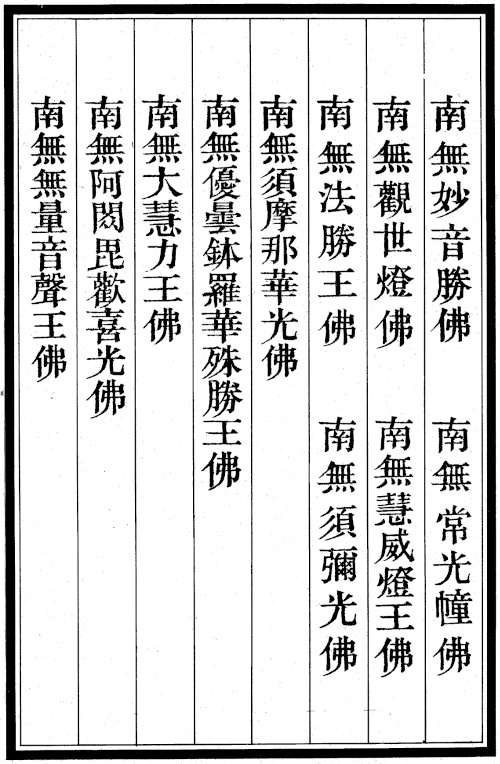 南無妙音勝佛　南無常光幢佛
南無觀世燈佛　南無慧威燈王佛
南無法勝王佛　南無須彌光佛
南無須摩那華光佛
南無優曇鉢羅華殊勝王佛
南無大慧力王佛
南無阿閦毘歡喜光佛
南無無量音聲王佛